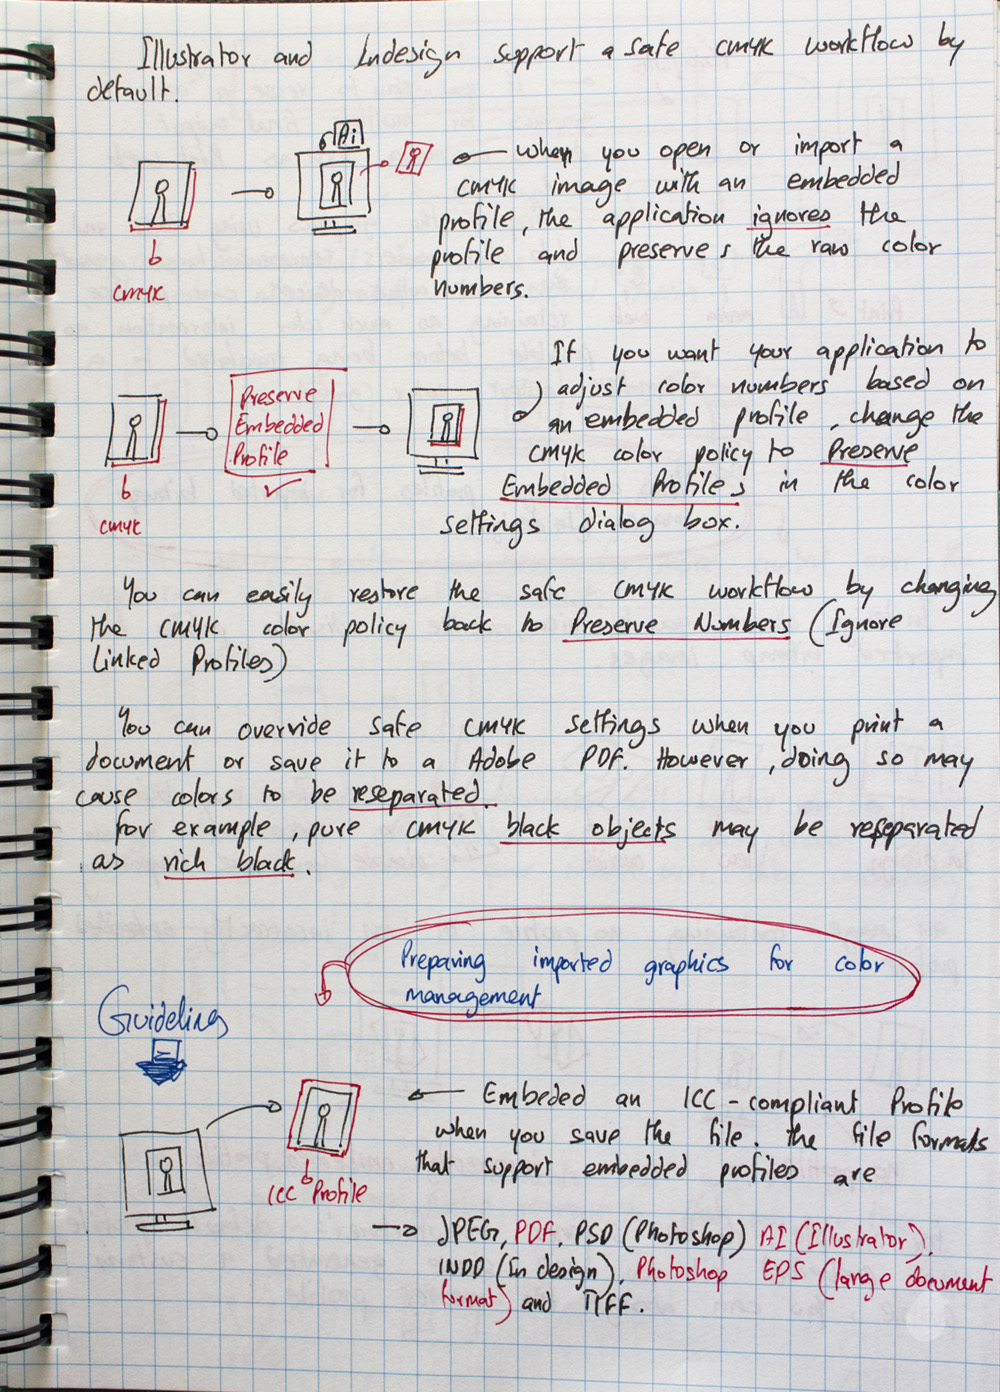 Illustrator and Indesign support a safe cmyk workflow by
default.
Ai
when you open or import a
cmyk image with an embedded
profile, the application ignores the
profile and preserves the raw color
numbers.
cmyk
If you want your application to
adjust color numbers based on
an embedded profile, change the
cmyk color policy to Preserve
Embedded Profiles in the color
settings dialog box.
Preserve
Embedded
Profile
cmyk
You can easily restore the safe cmyk workflow by changing
the cmyk color policy back to Preserve Numbers (Ignore
Linked Profiles)
You can override safe cmyk settings when you print a
document or save it to a Adobe PDF. However, doing so may
cause colors to be reseparated.
for example, pure cmyk black objects may be reseparated
as rich black.
Preparing imported graphics for color
management
Guidelines
Embeded an ICC-compliant Profile
when you save the file. the file formats
that support embedded profiles are
ICC Profile
JPEG, PDF, PSD (Photoshop) AI (Illustrator),
INDD (In design), Photoshop EPS (large document
format) and TIFF.